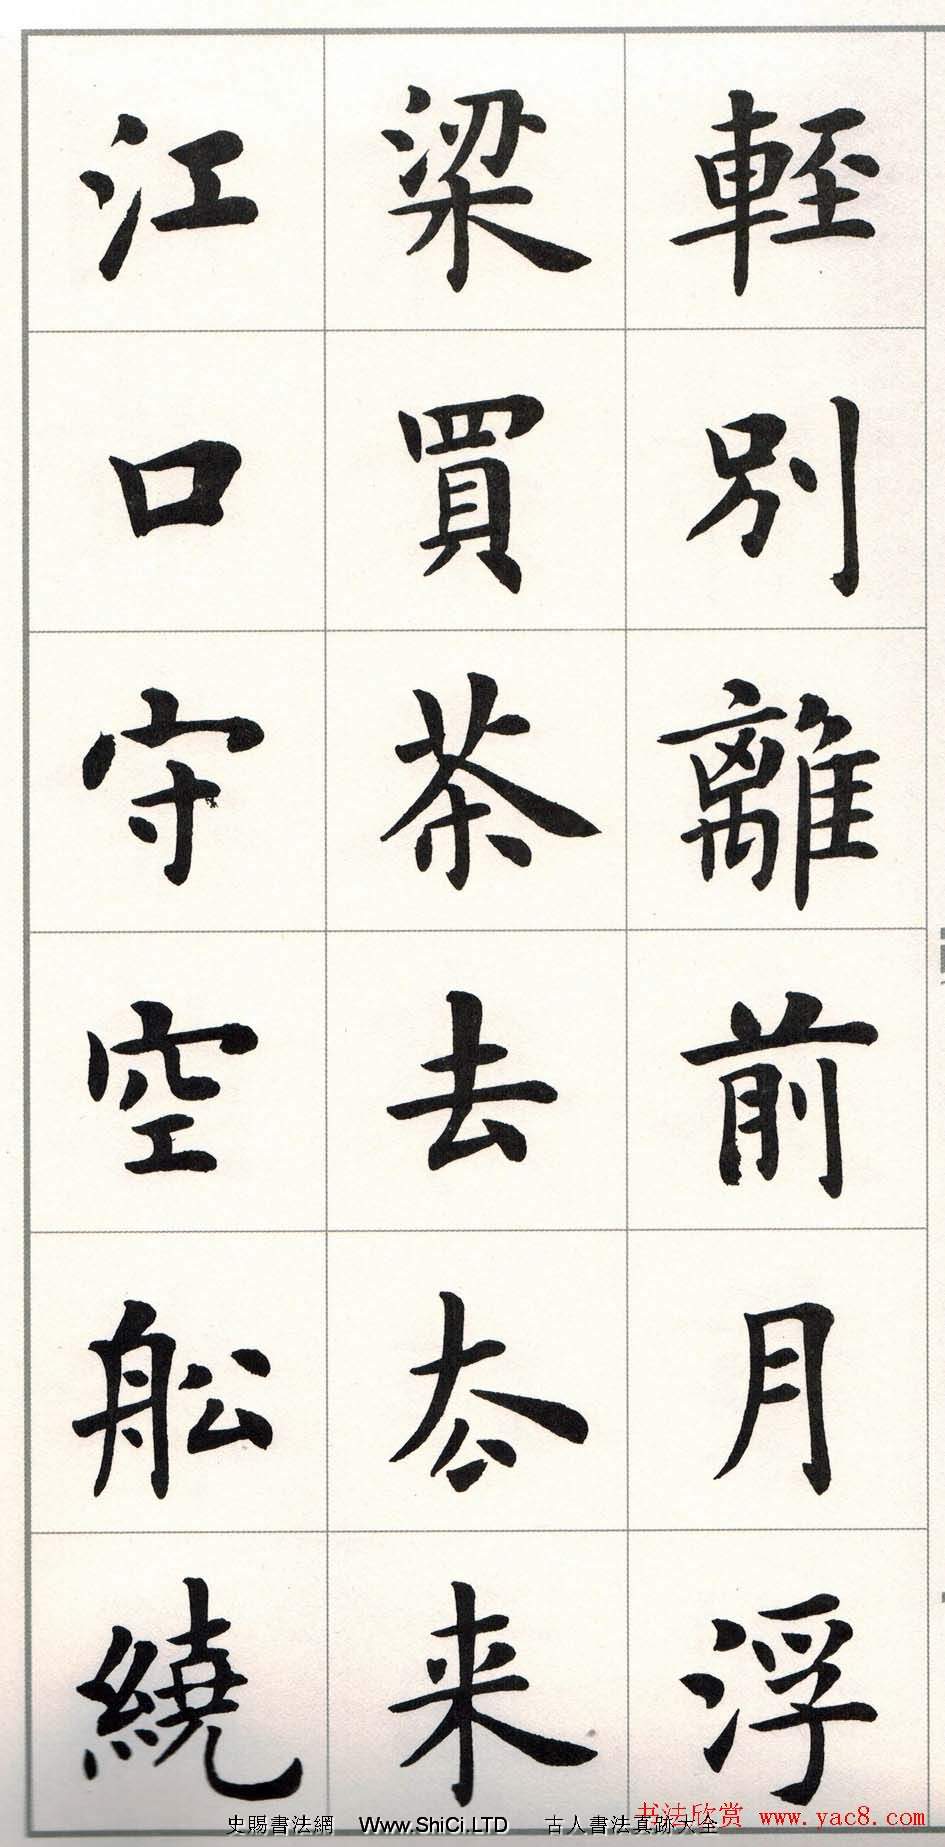 輕別離前月浮
梁買茶去厺来
江口守空舩繞
书法欣赏 www.yac8.com
史賜書法網 Www.ShiCi.LTD 古人書法真跡大全